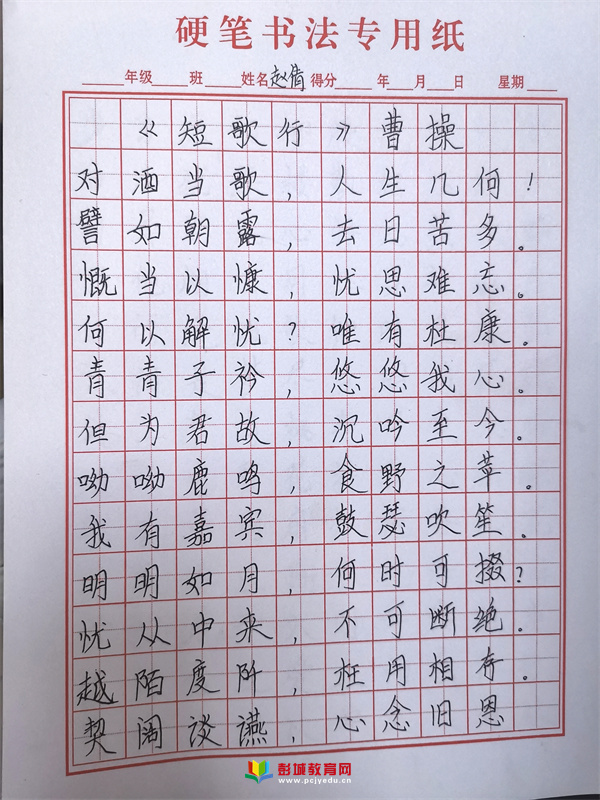 硬笔书法专用纸
____年级____班____姓名赵倩得分____年____月____日 星期____
《短歌行》曹操
对酒当歌,人生几何!
譬如朝露,去日苦多。
慨当以慷,忧思难忘。
何以解忧?唯有杜康。
青青子衿,悠悠我心。
但为君故,沉吟至今。
呦呦鹿鸣,食野之苹。
我有嘉宾,鼓瑟吹笙。
明明如月,何时可掇?
忧从中来,不可断绝。
越陌度阡,枉用相存。
契阔谈讌,心念旧恩
彭城教育网
www.pcjyedu.cn